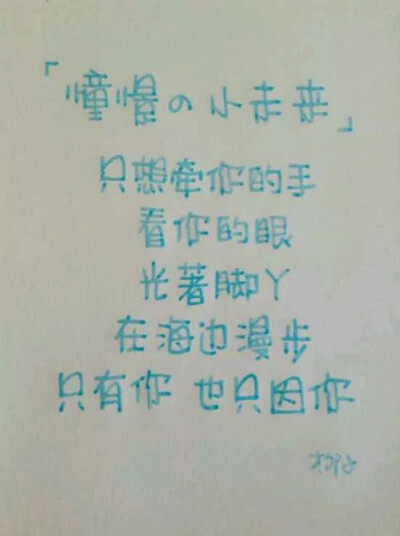 「憧憬の小未来」
只想牵你的手
看你的眼
光著脚丫
在海边漫步
只有你 也只因你